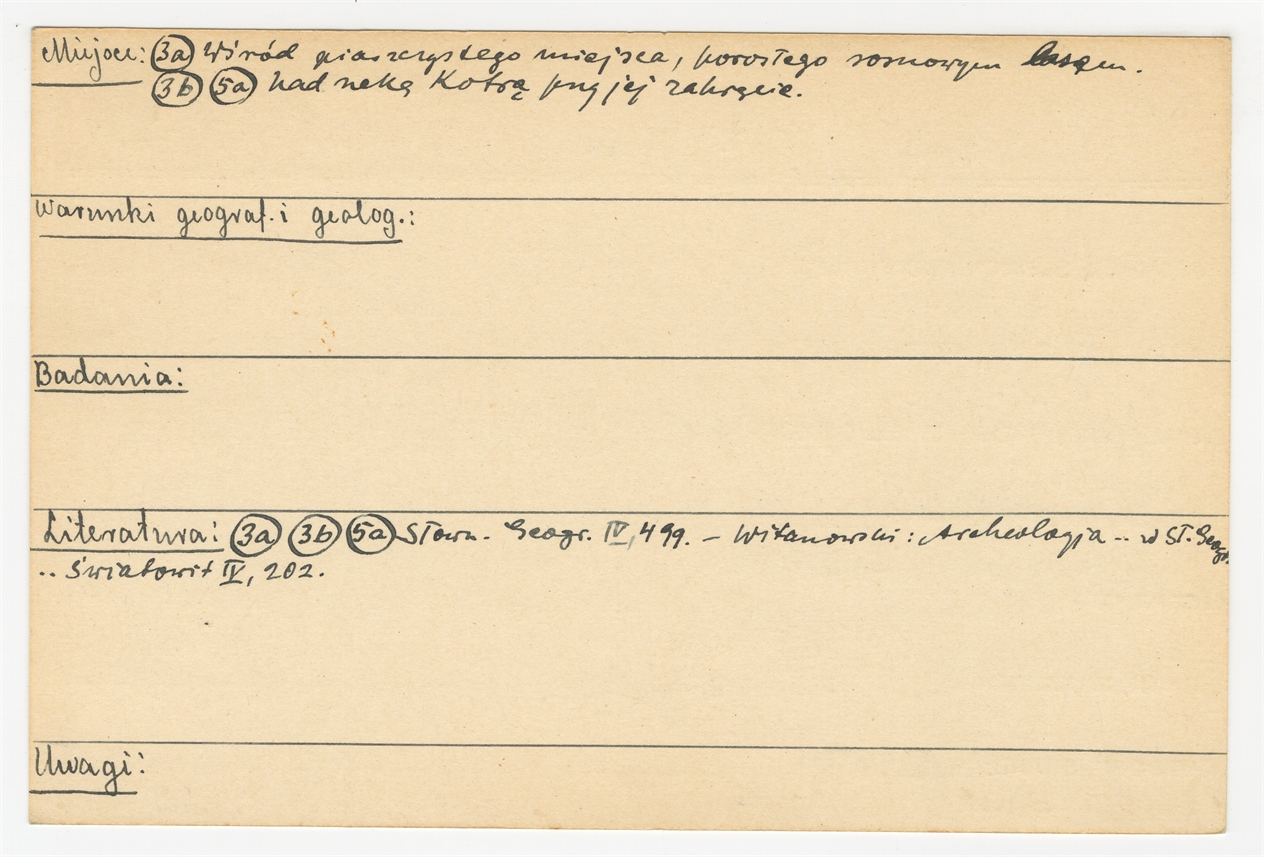 Miejsce: (3a) Wśród piaszczystego miejsca, porosłego sosnowym lasem.
(3b) (5a) nad rzeką Kotrą przy jej zakręcie.
Warunki geograf. i geolog.:
Badania:
Literatura: (3a) (3b) (5a) Słown. Geogr. IV, 499. – Witanowski: Archeologja .. w Sł. Geogr.
.. Światowit IV, 202.
Uwagi: